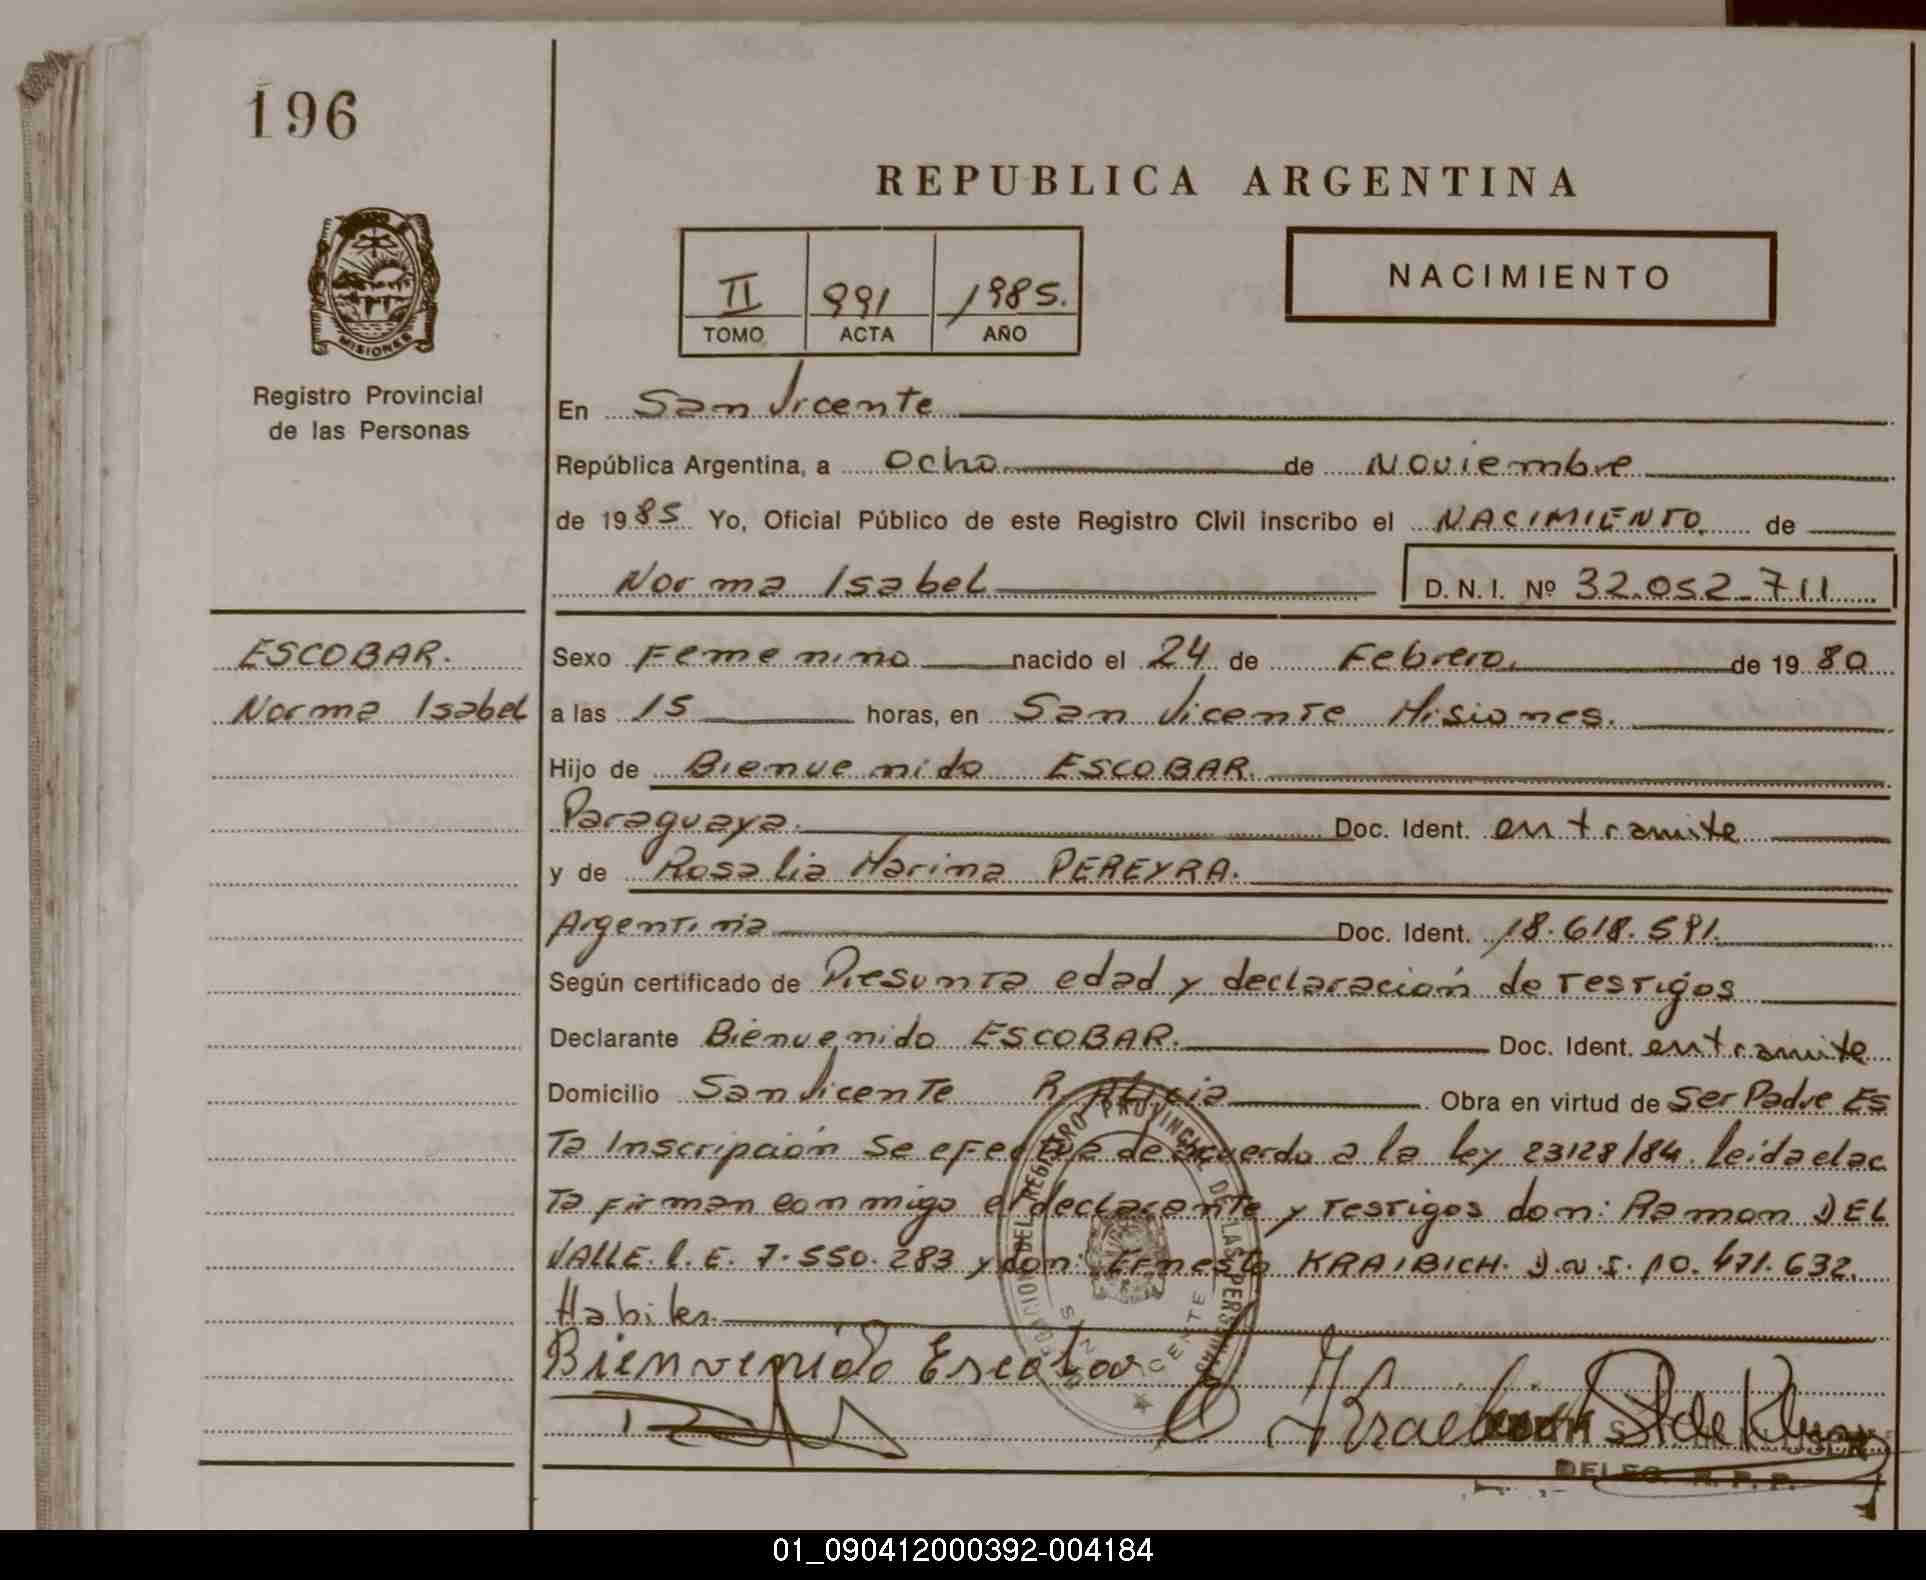 196
REPUBLICA ARGENTINA
MISIONES
Registro Provincial
de las Personas
II 991 1985.
TOMO ACTA AÑO
NACIMIENTO
En San Vicente
República Argentina, a ocho de Noviembre
de 1985 Yo, Oficial Público de este Registro Civil inscribo el NACIMIENTO. de
Norma Isabel D. N. I. Nº 32.052.711
ESCOBAR.
Norma Isabel
Sexo Femenino nacido el 24 de Febrero. de 1980
a las 15 horas, en San Vicente Misiones.
Hijo de Bienvenido ESCOBAR.
Paraguaya. Doc. Ident. en tramite
y de Rosalia Marina PEREYRA.
Argentina Doc. Ident. 18.618.591.
Según certificado de Presunta edad y declaración de testigos
Declarante Bienvenido ESCOBAR. Doc. Ident. en tramite
Domicilio San Vicente Obra en virtud de Ser Padre Es
Ta Inscripción Se efectua de acuerdo a la ley 23128/84. leida el ac
Ta firman conmigo el declarante y testigos don: Ramon DEL
VALLE. L. E. 7.550.283 y don: Ernesto KRAIBICH. D.N.I. 10.471.632.
Habiles.
Bienvenido Escobar
DELEG. R. P. P.
01_090412000392-004184